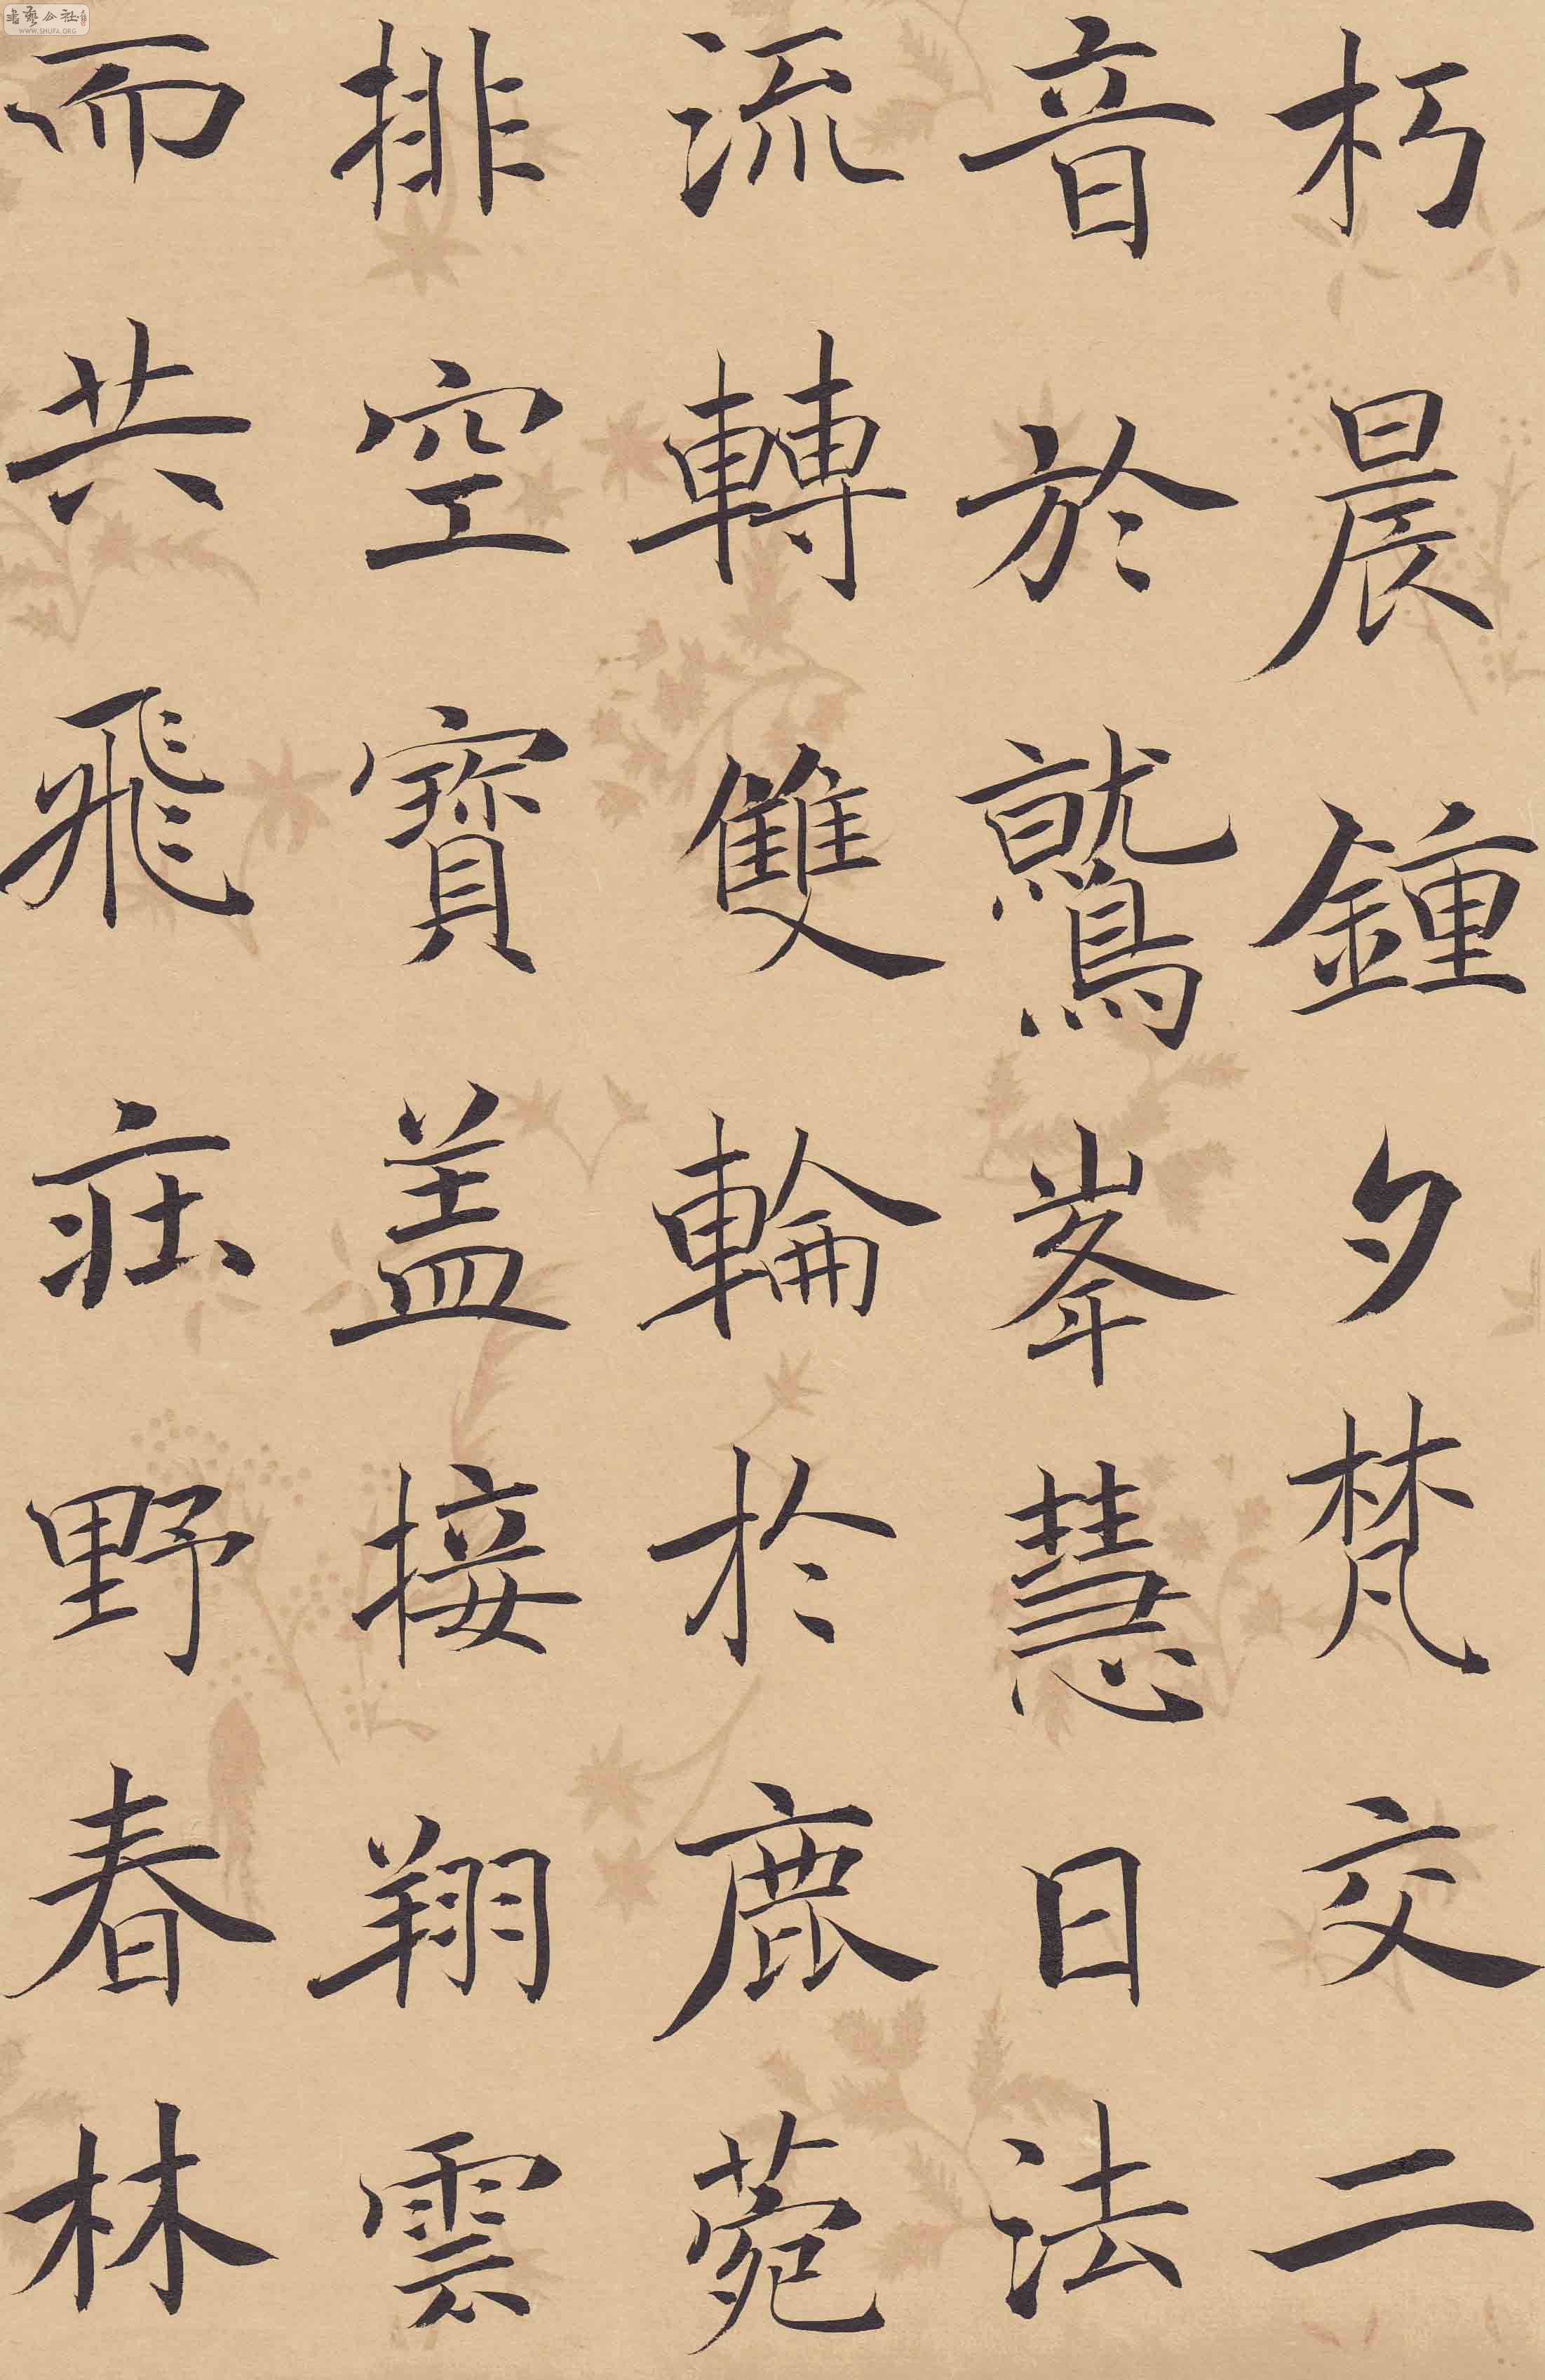 朽晨鍾夕梵交二
音於鷲峯慧日法
流轉雙輪於鹿菀
排空寶盖接翔雲
而共飛莊野春林
WWW.SHUFA.ORG